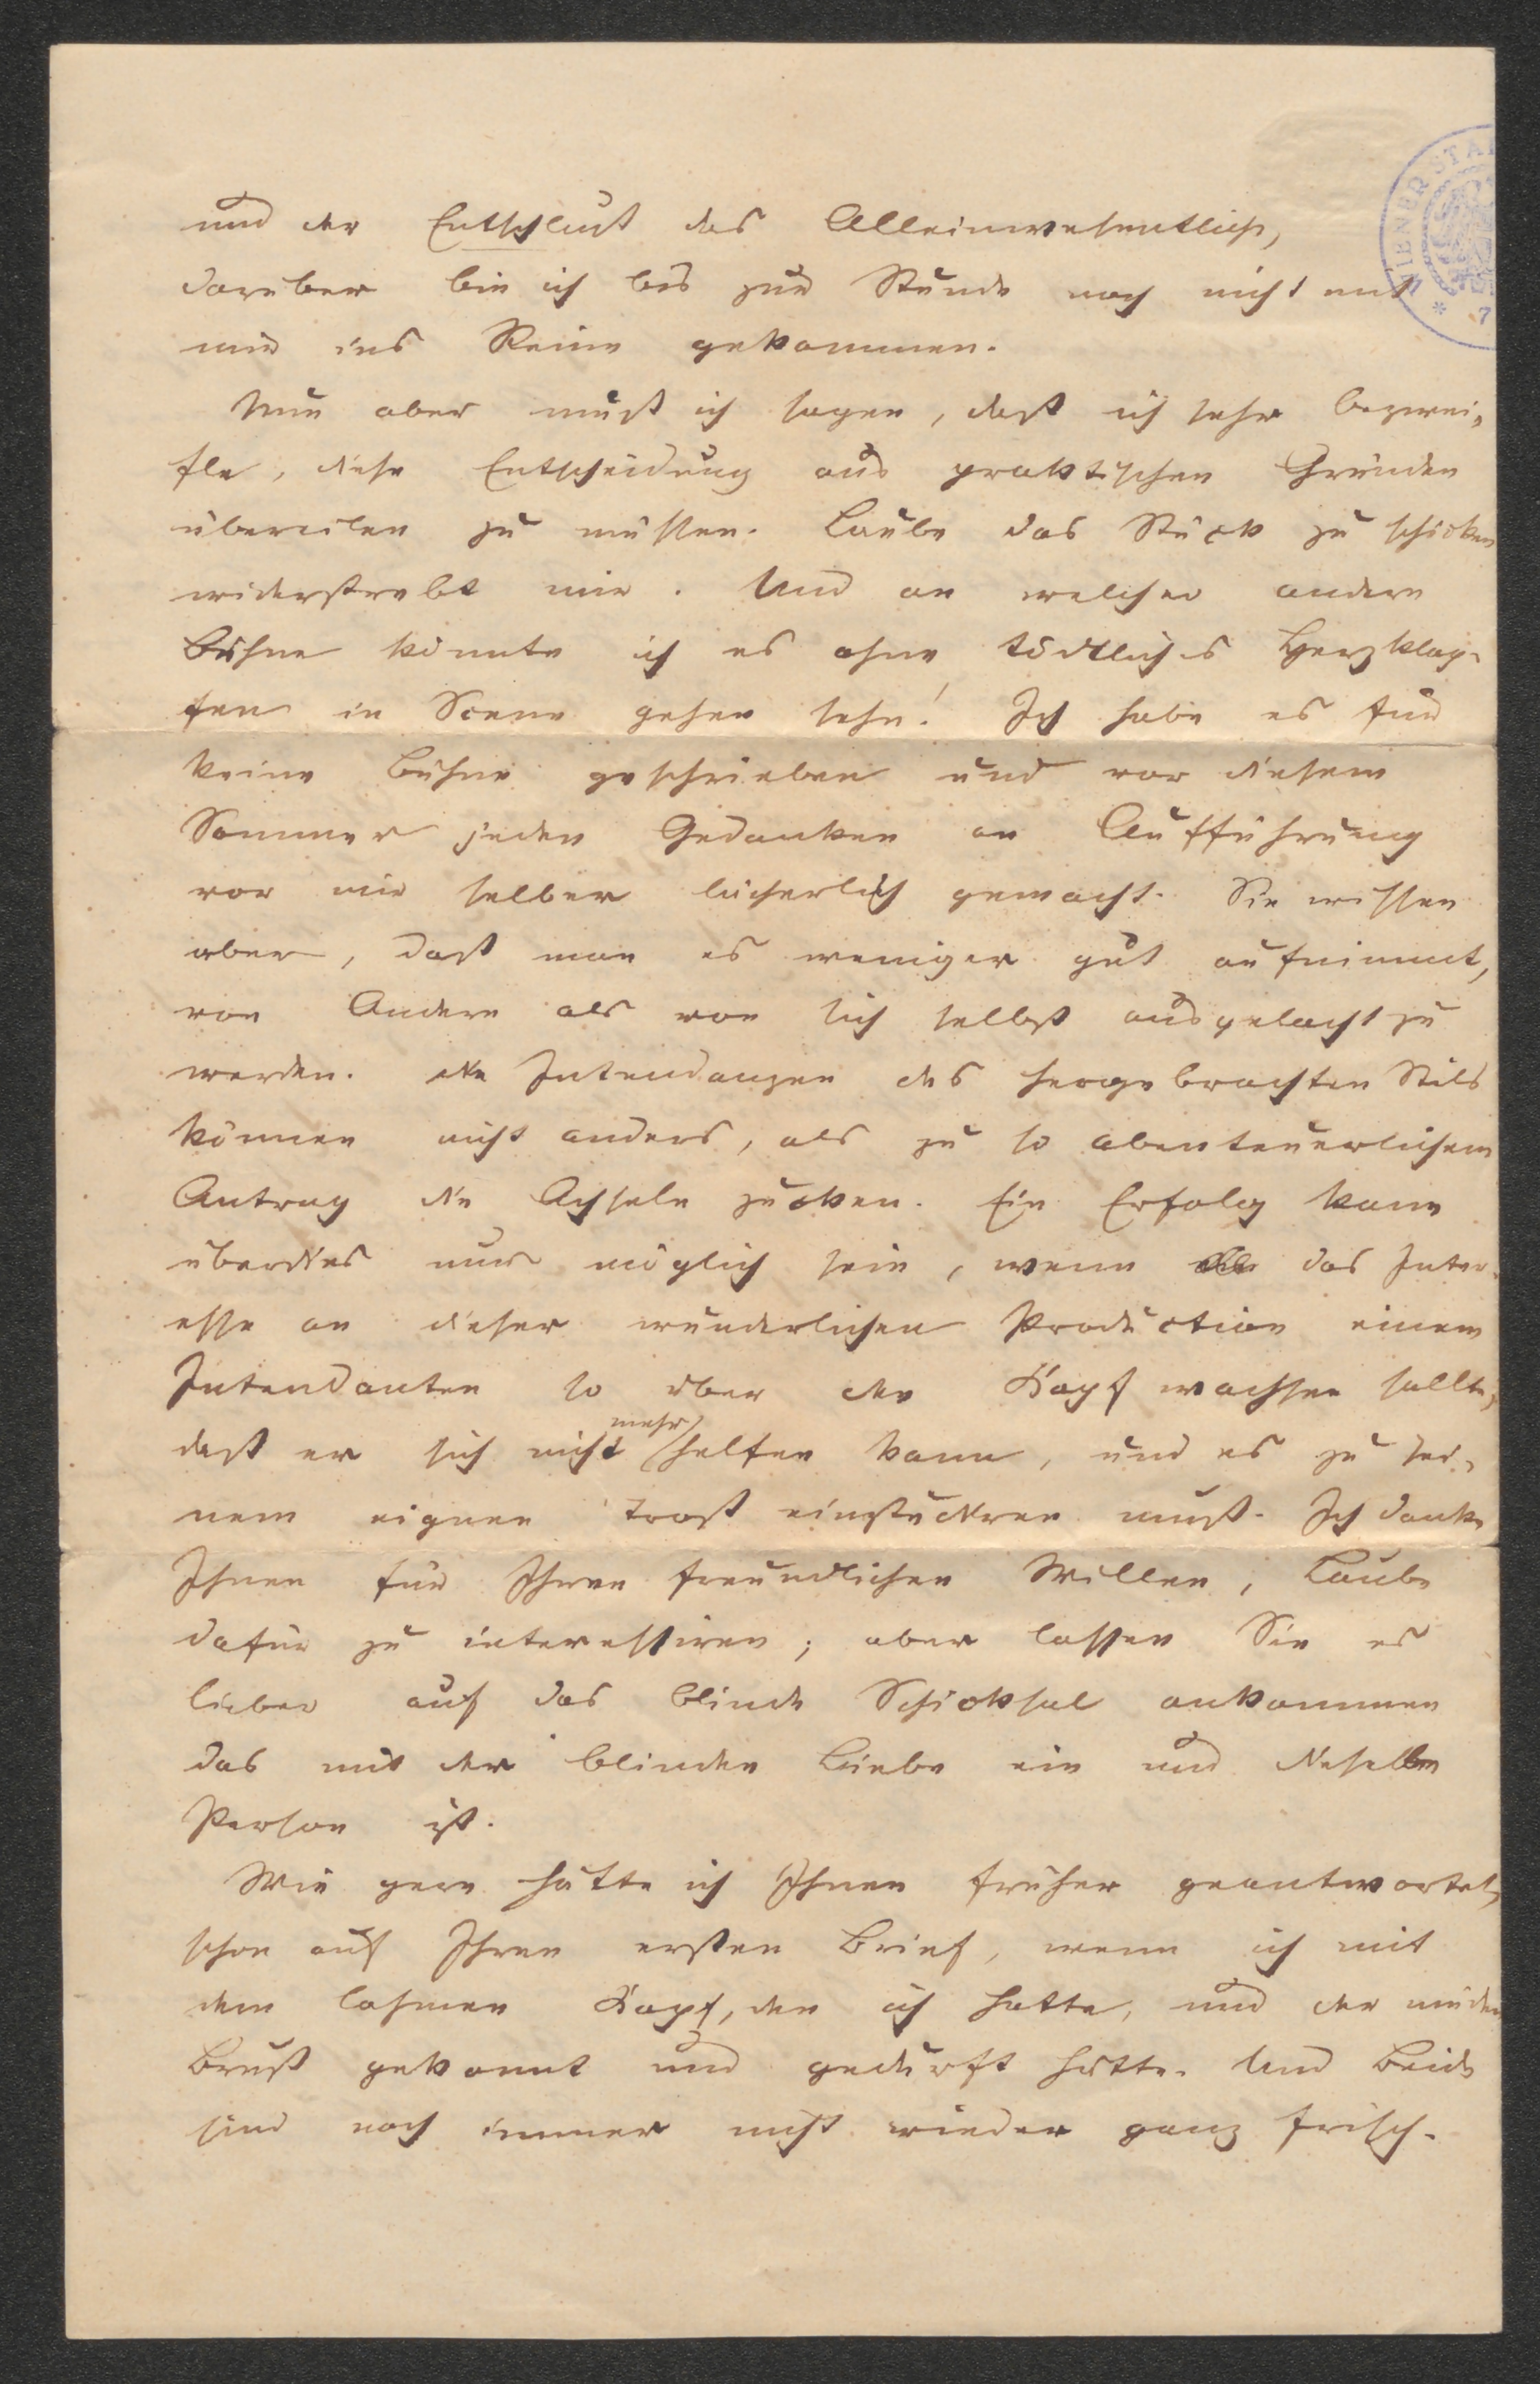 und der Entschluß das Alleinwesentliche,
darüber bin ich bis zur Stunde noch nicht mit
mir ins Reine gekommen.
Nun aber muß ich sagen, daß ich sehr bezwei-
fle, diese Entscheidung aus praktischen Gründen
übereilen zu müssen. Laube das Stück zu schicken
widerstrebt mir. Und an welcher andern
Bühne könnte ich es ohne tödtliches Herzklop-
fen in Scene gehen sehn! Ich habe es für
keine Bühne geschrieben und vor diesem
Sommer jeden Gedanken an Aufführung
vor mir selber lächerlich gemacht. Sie wissen
aber, daß man es weniger gut aufnimmt,
von Andern als von sich selbst ausgelacht zu
werden. Die Intendanzen des hergebrachten Stils
können nicht anders, als zu so abenteuerlichem
Antrag die Achseln zucken. Ein Erfolg kann
überdies nur möglich sein, wenn das Inter-
esse an dieser wunderlichen Production einem
Intendanten so über den Kopf wachsen sollte,
daß er sich nicht mehr helfen kann, und es zu sei-
nem eignen Trost einstudiren muß. Ich danke
Ihnen für Ihren freundlichen Willen, Laube
dafür zu interessiren; aber lassen Sie es
lieber auf das blinde Schicksal ankommen
das mit der blinden Liebe ein und dieselbe
Person ist.
Wie gern hätte ich Ihnen früher geantwortet,
schon auf Ihren ersten Brief, wenn ich mit
dem lahmen Kopf, den ich hatte, und der müden
Brust gekonnt und gedurft hätte. Und Beide
sind noch immer nicht wieder ganz frisch.
WIENER STA
* 7